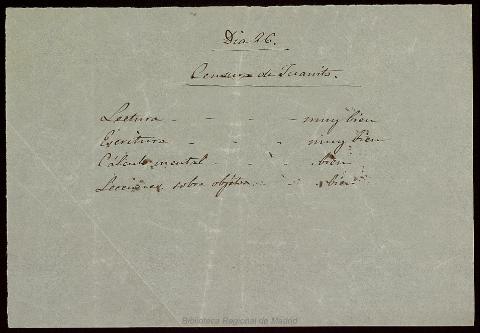 Dia 26.
Censura de Juanito.
Lectura - - - - muy bien
Escritura - - - - muy bien
Cálculo mental - - - bien
Lecciones sobre objetos - - bien
Biblioteca Regional de Madrid